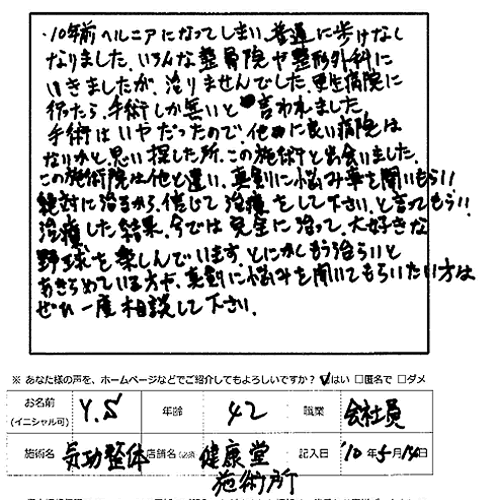 ・10年前ヘルニアになってしまい、普通に歩けなく
なりました。いろんな整骨院や整形外科に
いきましたが、治りませんでした。更生病院に
行ったら、手術しか無いと言われました。
手術はイヤだったので、他に良い病院は
ないかと、思い探した所、この施術と出会いました。
この施術院は他と違い、真剣に悩み事を聞いてもらい
絶対に治るから、信じて治療をして下さい。と言ってもらい
治療した結果、今では完全に治って、大好きな
野球を楽しんでいます。とにかくもう治らないと
あきらめている方や、真剣に悩みを聞いてもらいたい方は
ぜひ一度相談して下さい。
※ あなた様の声を、ホームページなどでご紹介してもよろしいですか？ ☑はい □匿名で □ダメ
お名前 (イニシャル可) Y.S 年齢 42 職業 会社員
施術名 気功整体 店舗名 健康堂施術所 記入日 '10年5月 日